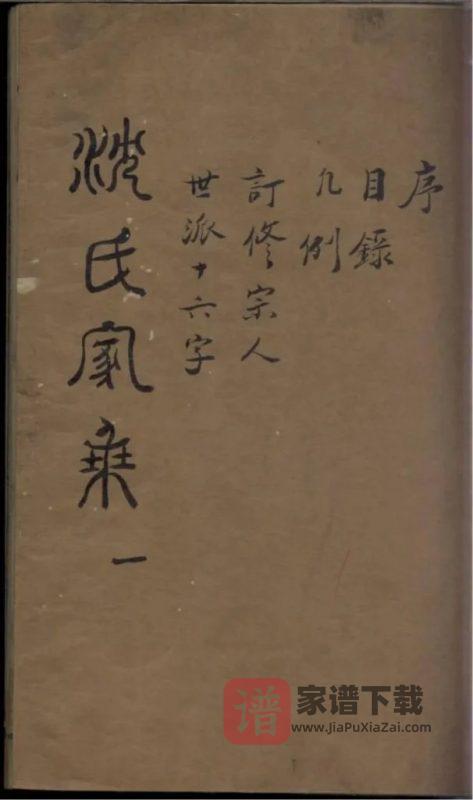 序
目錄
凡例
訂修宗人
世派十六字
沈氏家乘 一
谱 家谱下载
www.JiaPuXiaZai.com